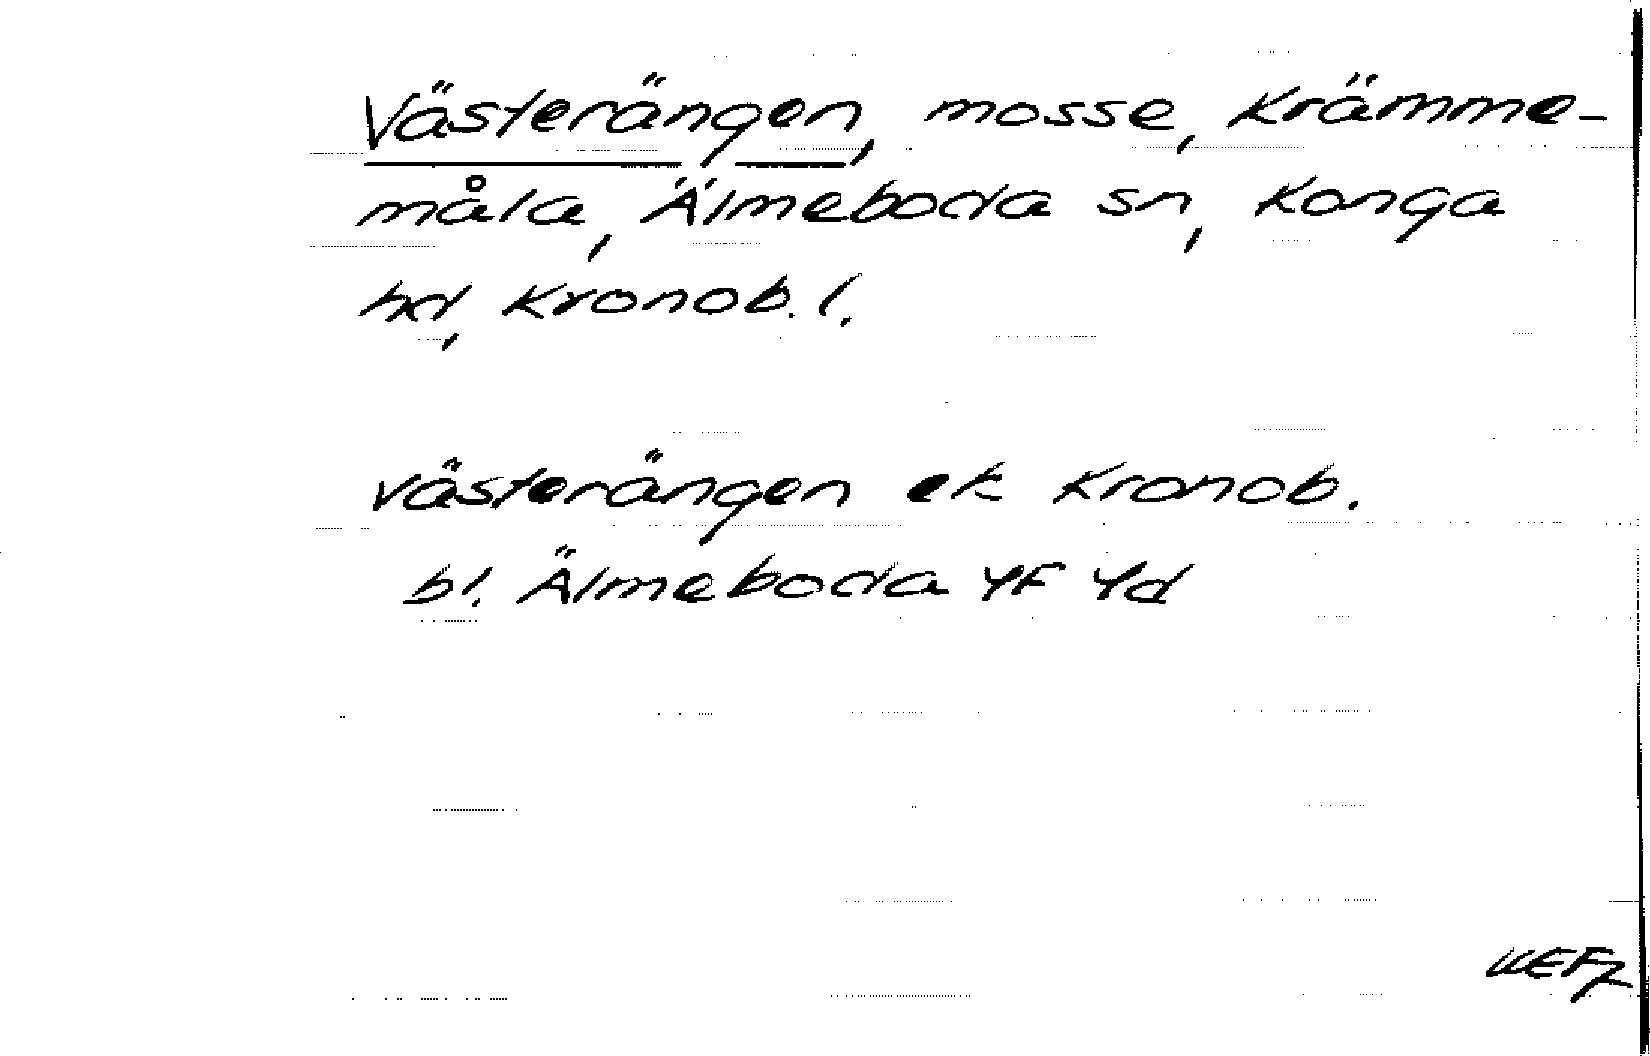 Västerängen, mosse, Krämme-
måla, Älmeboda sn, Konga
hd, Kronob. l.
västerängen ek Kronob.
bl. Älmeboda 4F 4d